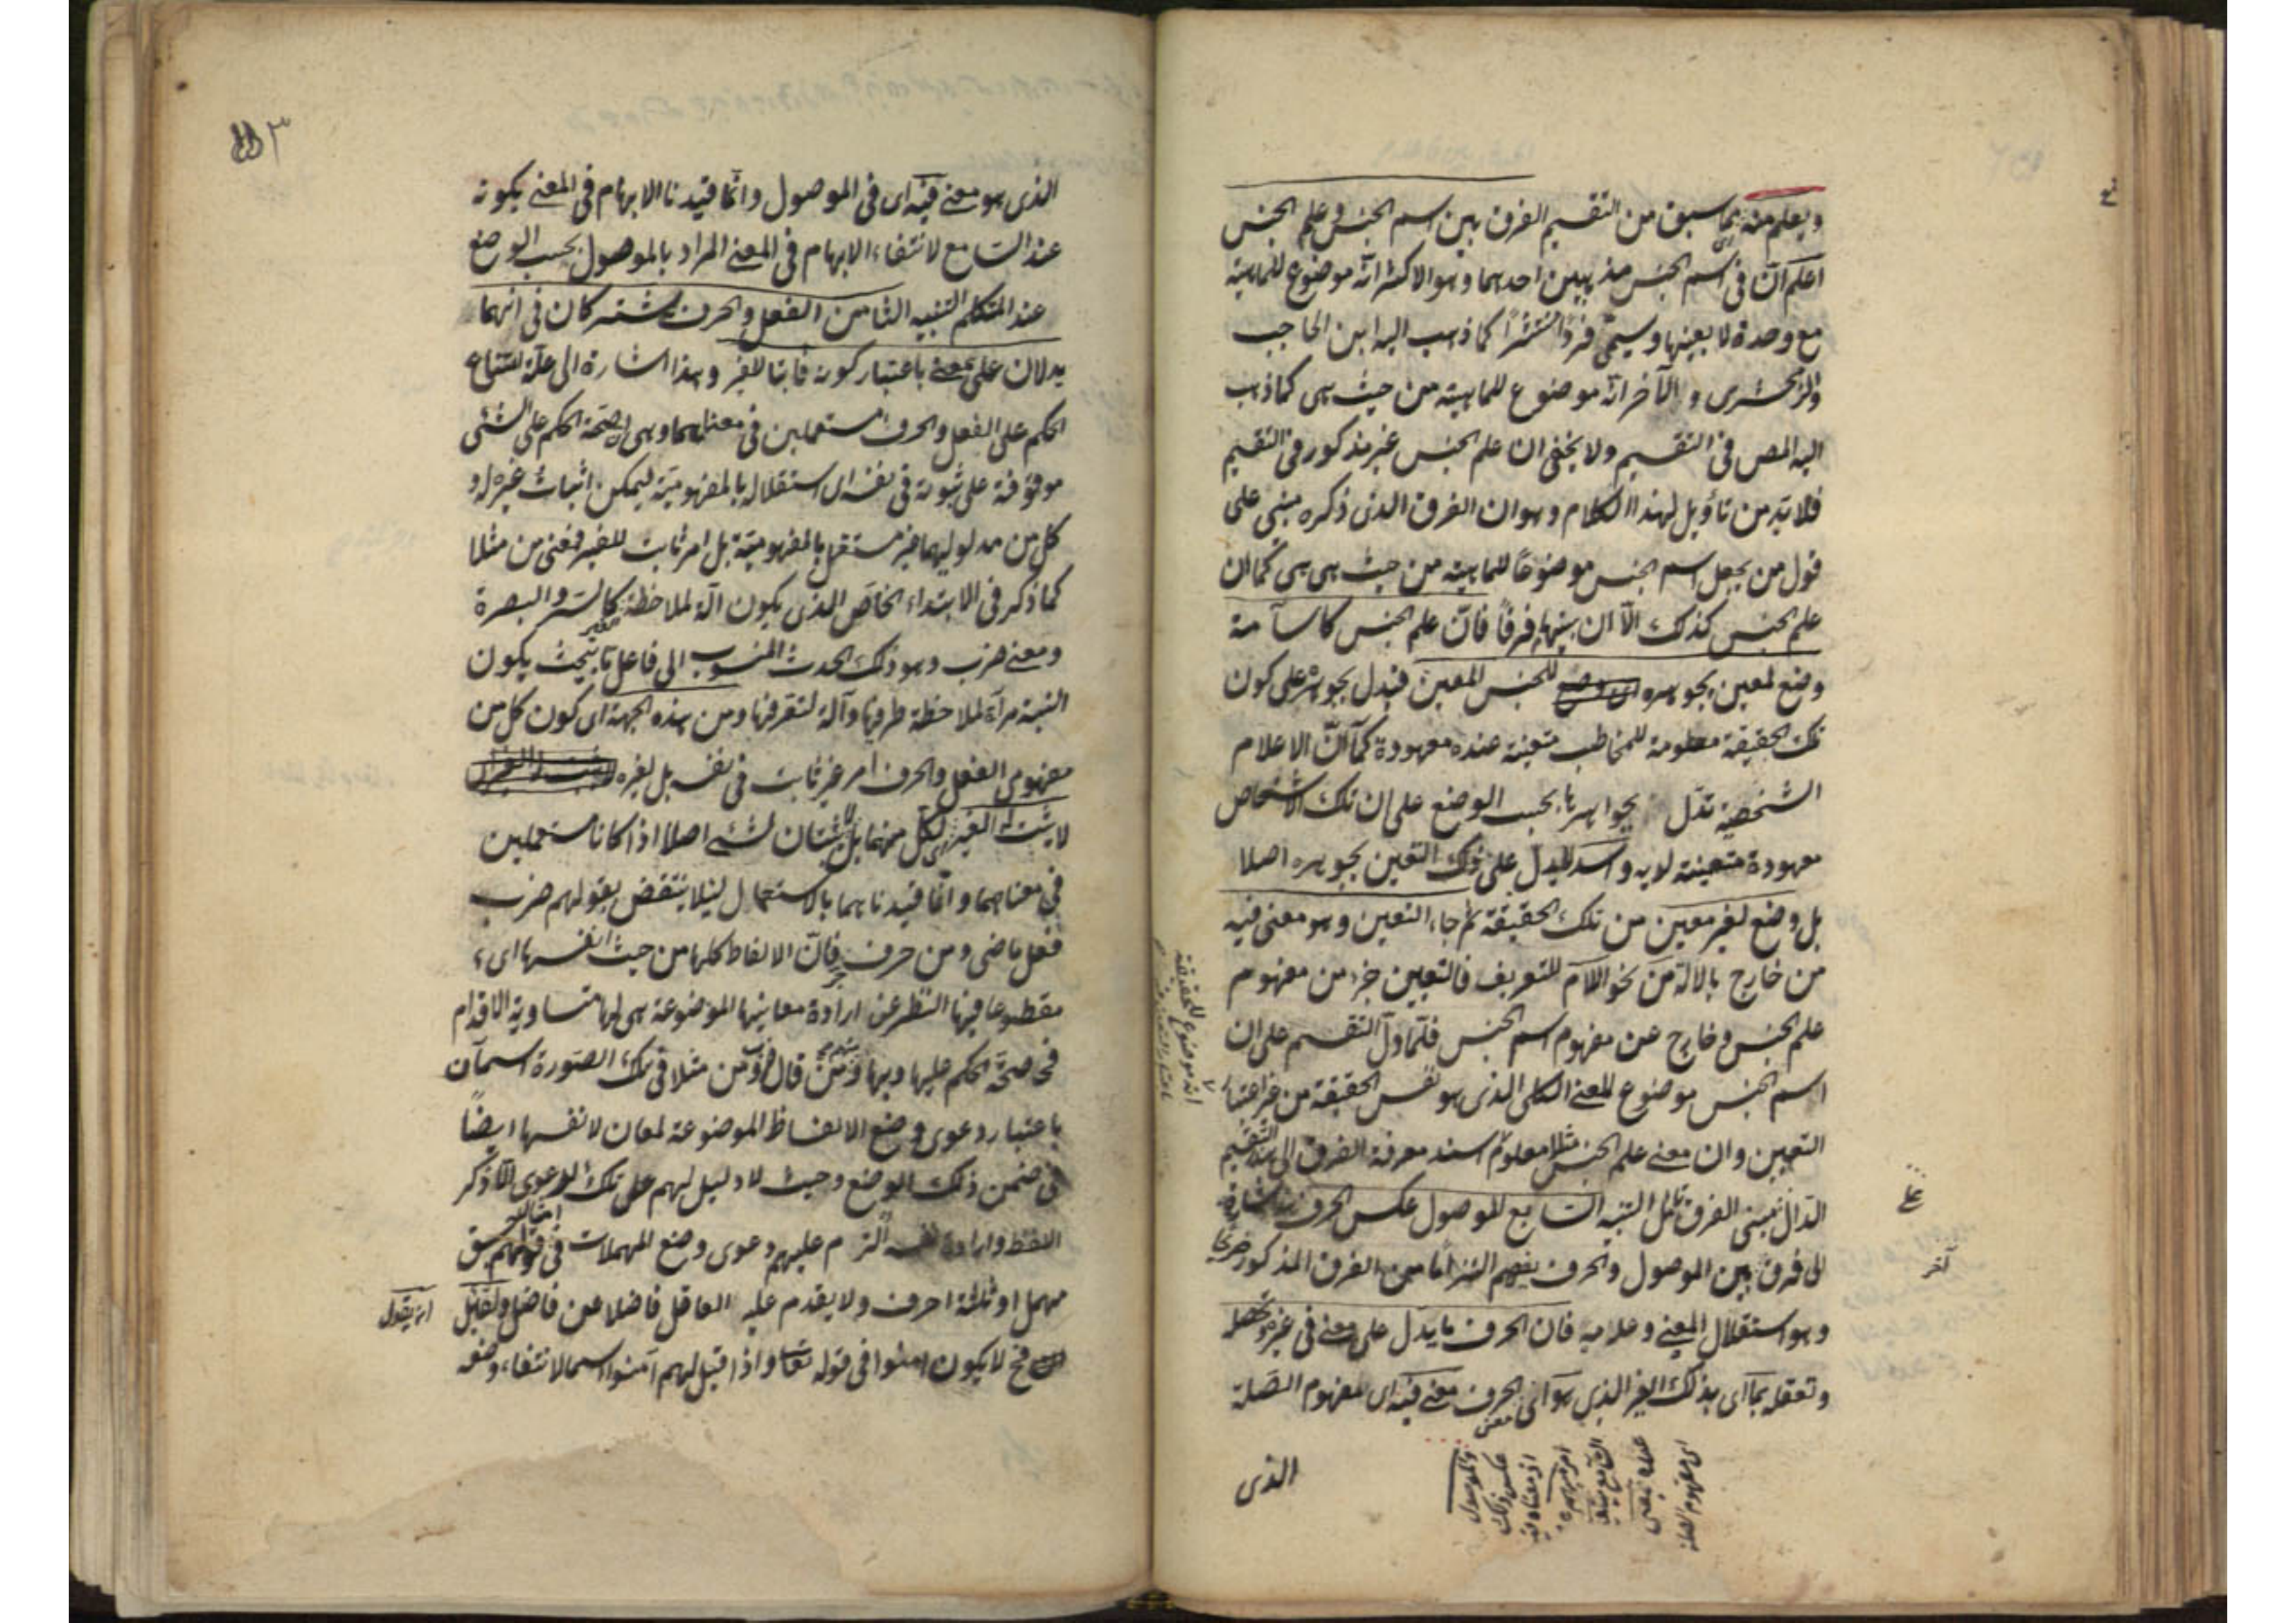 ويعلم منه مما سبق من التقسيم الفرق بين اسم الجنس وعلم الجنس
اعلم ان فى اسم الجنس مذهبين احدهما وهو الاكثر انه موضوع للماهية
مع وحدة لا بعينها ويسمى فردا منتشرا كما ذهب اليه ابن الحاجب
والزمخشرى والآخر انه موضوع للماهية من حيث هى كما ذهب
اليه المص فى التقسيم ولا يخفى ان علم الجنس غير مذكور فى التقسيم
فلا بد من تأويل لهذا الكلام وهو ان الفرق الذى ذكره مبنى على
قول من يجعل اسم الجنس موضوعا للماهية من حيث هى هى كما ان
علم الجنس كذلك الا ان بينهما فرقا فان علم الجنس كاسامة
وضع لمعين بجوهره للجنس المعين فيدل بجوهره على كون
تلك الحقيقة معلومة للمخاطب متعينة عنده معهودة كما ان الاعلام
الشخصية تدل بجواهرها بحسب الوضع على ان تلك الاشخاص
معهودة متعينة لديه واسد لا يدل على ذلك التعين بجوهره اصلا
بل وضع لغير معين من تلك الحقيقة ثم جاء التعين وهو معنى فيه
من خارج بالالة من نحو اللام للتعريف فالتعيين جزء من مفهوم
علم الجنس وخارج عن مفهوم اسم الجنس فلما دل التقسيم على ان
اسم الجنس موضوع للمعنى الكلى الذى هو نفس الحقيقة من غير اعتبار
التعيين وان معنى علم الجنس مثلا معلوم اسند معرفة الفرق الى هذا التقسيم
الدال مبنى الفرق التنبيه السابع الموصول عكس الحرف هذا اشارة
الى فرق بين الموصول والحرف يفهم التزاما من الفرق المذكور صريحا
وهو استقلال المعنى وعدمه فان الحرف ما يدل على معنى فى غيره وتحصله
وتعقله بما اى بذلك الغير الذى هو اى الحرف معنى فيه اى المفهوم الصلة
انه موضوع للحقيقة
الذى
اى مفهوم الصلة
والموصول
عكس ذلك
٣
الذى هو معنى فيه اى فى الموصول وانما قيدنا الابهام فى المعنى بكونه
عند السامع لانتفاء الابهام فى المعنى المراد بالموصول بحسب الوضع
عند المتكلم التنبيه الثامن الفعل والحرف يشتركان فى انهما
يدلان على معنى باعتبار كونه ثابتا للغير وهذا اشارة الى علة امتناع
الحكم على الفعل والحرف مستعملين فى معناهما وهى ان صحة الحكم على الشئ
موقوفة على ثبوته فى نفسه اى استقلاله بالمفهومية ليمكن اثبات غيره له و
كل من مدلوليهما غير مستقل بالمفهومية بل امر ثابت للغير فمعنى من مثلا
كما ذكر فى الابتداء الخاص الذى يكون آلة لملاحظة كالسير والبصرة
ومعنى ضرب وهو ذلك الحدث المنسوب الى فاعل ما بحيث يكون
النسبة مرآة لملاحظة طرفيها وآلة لتعرفها ومن هذه الجهة اى كون كل من
مفهومى الفعل والحرف امر غير ثابت فى نفسه بل لغيره
لا يثبت له الغير اى لكل منهما بل لا يثبتان لشئ اصلا اذا كانا مستعملين
فى معناهما وانما قيدناهما بالاستعمال لئلا ينتقض بقولهم ضرب
فعل ماضى ومن حرف جر فان الالفاظ كلها من حيث انفسها اى
مقطوعا فيها النظر عن ارادة معانيها الموضوعة هى لها متساوية الاقدام
فى صحة الحكم عليها وبها ومن قال ضرب ومن مثلا فى تلك الصورة اسمان
باعتبار دعوى وضع الالفاظ الموضوعة لمعان لانفسها ايضا
فى ضمن ذلك الوضع وحيث لا دليل لهم على تلك الدعوى الا ذكر
اللفظ وارادة نفسه التزم عليهم دعوى وضع المهملات فى قولهم جسق
مهمل او ثلثة احرف ولا يقدم عليه العاقل فاضلا عن فاضل ولقائل
ان يقول
فح لا يكون امنوا فى قوله تعا واذا قيل لهم آمنوا اسما لانتفاء وضعه